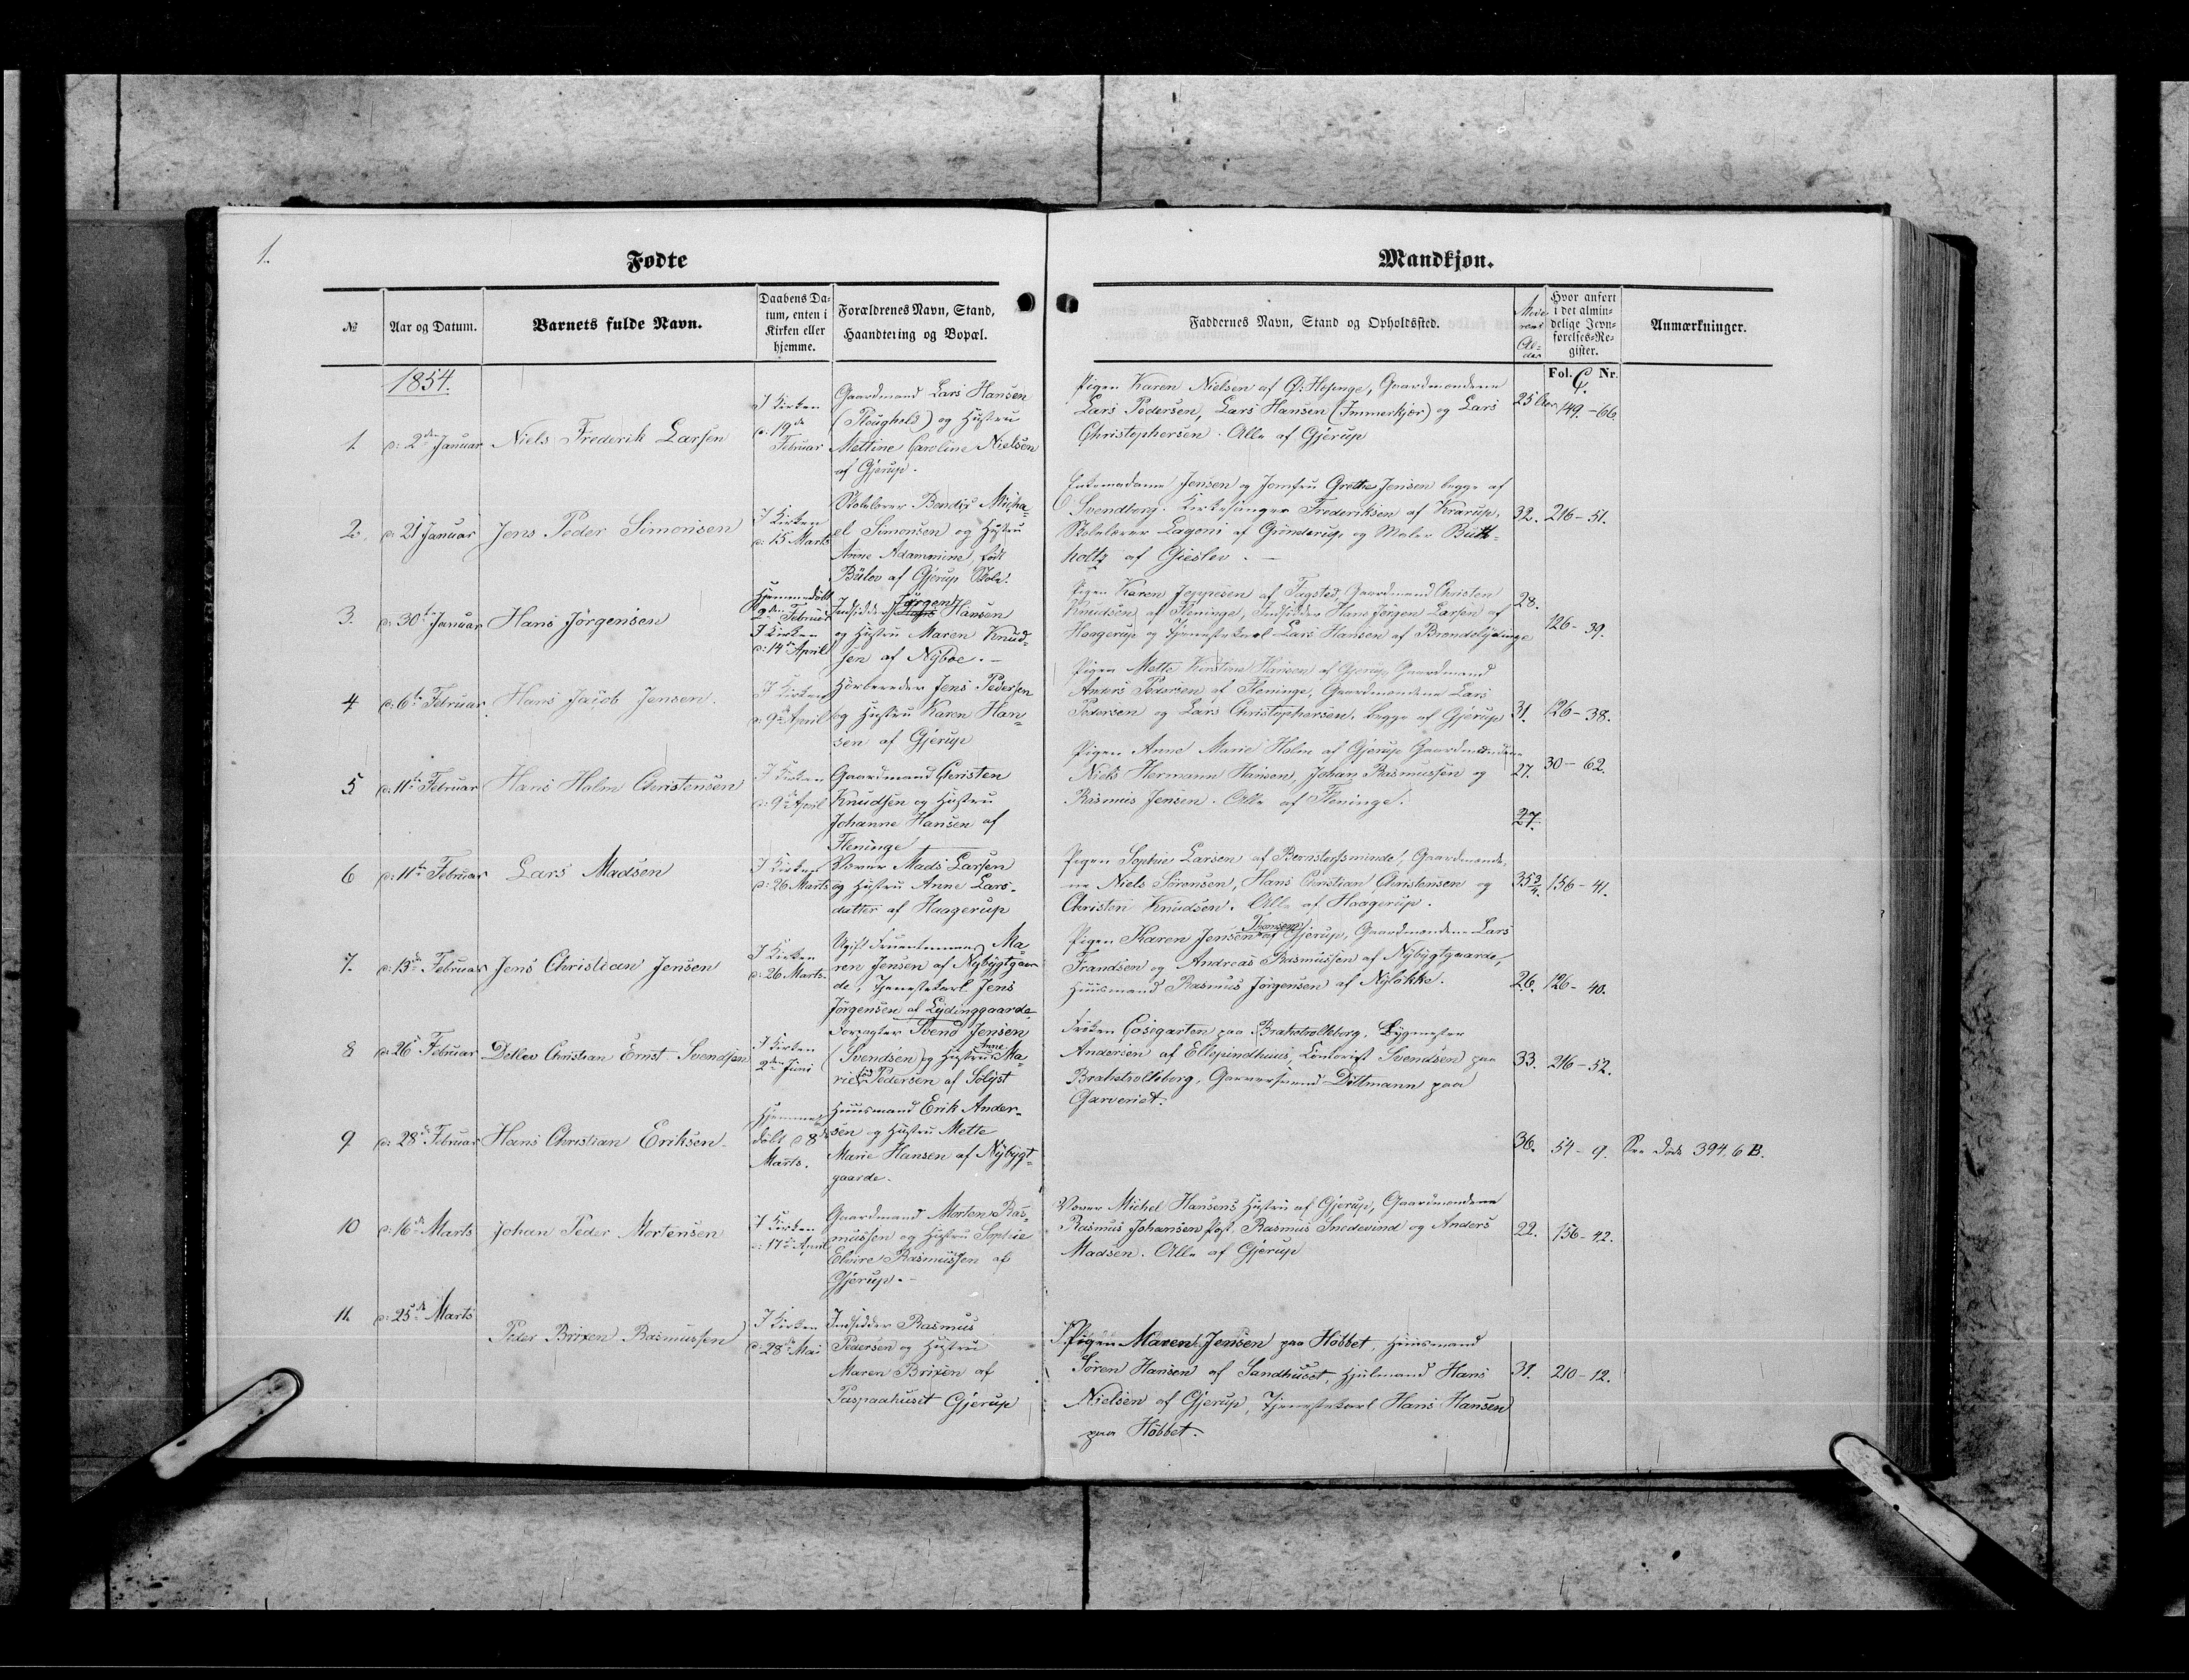 1.
Fødte
Mandkjøn.
№
Aar og Datum.
Barnets fulde Navn.
Daabens Da-
tum, enten i
Kirken eller
hjemme.
Forældrenes Navn, Stand,
Haandtering og Bopæl.
Faddernes Navn, Stand og Opholdssted.
Mode-
rens
Al-
der
Hvor anført
i det almin-
delige Jevn-
førelses-Re-
gister.
Fol. C. Nr.
Anmærkninger.
1854.
1.
d: 2den Januar
Niels Frederik Larsen
I Kirken
d: 19de
Februar
Gaardmand Lars Hansen
(Plougheld) og Hustru
Mettine Caroline Nielsen
af Gjerup.
Pigen Karen Nielsen af Ø: Hæsinge, Gaardmændene
Lars Pedersen, Lars Hansen (Immerkjær) og Lars
Christophersen. Alle af Gjerup
25 Aar
149.-66.
2.
d: 21 Januar
Jens Peder Simonsen
I Kirken
d: 15 Marts
Skolelærer Bendix Micha-
el Simonsen og Hustru
Anne Adammine født
Bülov af Gjerup Skole.
Jensen og Jomfru Grethe Jensen begge af
Svendborg. Kirkesanger Frederiksen af Krarup,
Skolelærer Lagoni af Gjønderup og Maler Buth-
holtz af Gieslev.
32.
216-51.
3.
d: 30te Januar
Hans Jörgensen
Hjemmedöbt
2den Februar
I Kirken
d: 14de April
Indsidder Jörgen Hansen
og Hustru Maren Knud-
sen af Nyboe.
Pigen Karen Jeppesen af Fagsted, Gaardmand Christen
Knudsen af Fleninge, Indsidder Hans Jørgen Larsen af
Haagerup og Tjenestekarl Lars Hansen af Brændelydinge
28.
126-39.
4
d: 6te Februar
Hans Jacob Jensen.
I Kirken
d: 9de April
Hørbereder Jens Pedersen
og Hustru Karen Han-
sen af Gjerup
Pigen Mette Kirstine Hansen af Gjerup, Gaardmand
Anders Pedersen af Fleninge, Gaardmændene Lars
Pedersen og Lars Christophersen, begge af Gjerup
31.
126-38.
5
d: 11te Februar
Hans Holm Christensen
I Kirken
d: 9de April
Gaardmand Christen
Knudsen og Hustru
Johanne Hansen af
Fleninge
Pigen Anne Marie Holm af Gjerup Gaardmændene
Niels Hermann Hansen, Johan Rasmussen og
Rasmus Jensen. Alle af Fleninge.
27.
30-62.
27.
6
d: 11te Februar
Lars Madsen
I Kirken
d: 26 Marts
Væver Mads Larsen
og Hustru Anne Lars-
datter af Haagerup
Pigen Sophie Larsen af Bernstorfsminde, Gaardmænde-
ne Niels Sörensen, Hans Christian Christensen og
Christen Knudsen. Alle af Haagerup.
35¾.
156-41.
7.
d: 13de Februar
Jens Christian Jensen
I Kirken
d: 26 Marts
Ugift Fruentimmer Ma
ren Jensen af Nybygtgaar
de, Tjenestekarl Jens
Jørgensen af Lydinggaarde
Pigen Karen Jensen Thomsen af Gjerup, Gaardmændene Lars
Frandsen og Andreas Rasmussen af Nybygtgaarde,
Huusmand Rasmus Jørgensen af Nyløkke.
26.
126-40.
8
d: 26de Februar
Detlev Christian Ernst Svendsen
I Kirken
2den Juni
Forpagter Svend Jensen
(Svendsen) og Hustru Anne Ma-
rie fød Pedersen af Sölyst
Frøken Cosegarten paa Brahetrolleborg, Bygmester
Andersen af Ellepindhuus, Contorist Svendsen paa
Brahetrolleborg, Garversvend Dittmann paa
Garveriet.
33.
216-52.
9
d: 28de Februar
Hans Christian Eriksen
Hjemme
döbt d 8de
Marts.
Huusmand Erik Ander-
sen og Hustru Mette
Marie Hansen af Nybygt-
gaarde.
36.
54-9.
See Døde 394, 6 B.
10
d: 16de Marts
Johan Peder Mortensen
I Kirken
d: 17de April
Gaardmand Morten Ras-
mussen og Hustru Sophie
Elvire Rasmussen af
Gjerup.-
Væver Michel Hansens Hustru af Gjerup, Gaardmændene
Rasmus Johansen Post, Rasmus Snedevind og Anders
Madsen. Alle af Gjerup
22.
156-42.
11.
d: 25de Marts
Peder Brixen Rasmussen
I Kirken
d: 28de Mai
Indsidder Rasmus
Pedersen og Hustru
Maren Brixen af
Paspaahuset Gjerup
Pigen Maren Jensen paa Höbbet, Huusmand
Søren Hansen af Sandhuset, Hjulmand Hans
Nielsen af Gjerup, Tjenestekarl Hans Hansen
paa Höbbet.
31.
210-12.